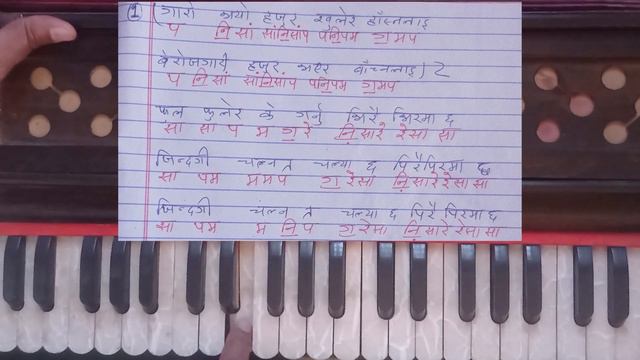 ① गाह्रो भयो हजुर खुलेर हाँस्नलाइ
प नि सां सांनिसांप पनिपम ग मप
बेरोजगारी हजुर भएर बाँच्नलाइ) 2
प नि सां सांनिसांप पनिपम ग मप
फुल फुलेर के गर्नु भिरै भिरमा छ
सा सा प म ग रे नि सारे रेसा सा
जिन्दगी चल्न त चल्या छ पिरैपिरमा छ
सा पम ममप ग रेसा नि सारेरेसासा
जिन्दगी चल्न त चल्या छ पिरै पिरमा छ
सा पम म नि प ग रेसा नि सारेरेसासा